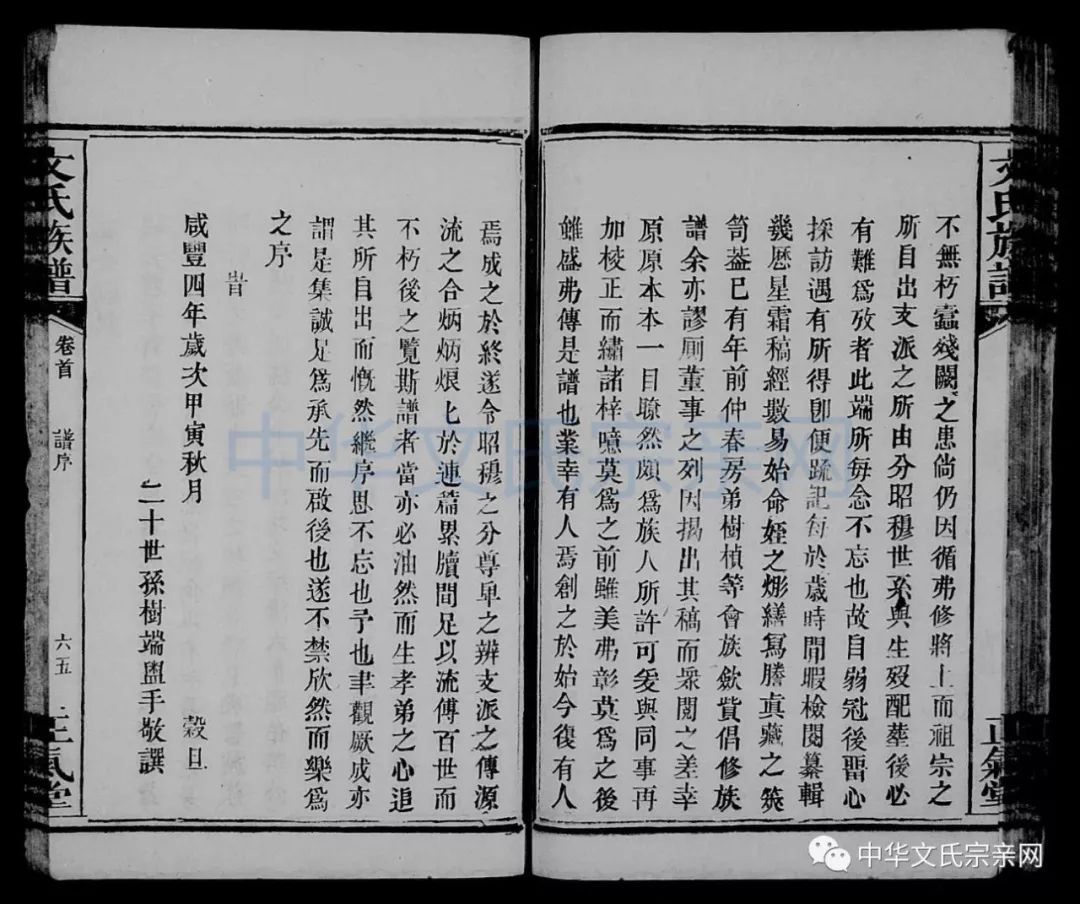 不無朽蠹殘闕之患倘仍因循弗修將上而祖宗之
所自出支派之所由分昭穆世系與生歿配塟後必
有難爲攷者此端所每念不忘也故自弱冠後畱心
採訪遇有所得卽便疏記每於歲時閒暇檢閱纂輯
幾歷星霜稿經數易始命姪之煭繕寫謄眞藏之篋
笥葢已有年前仲春房弟樹楨等會族歛貲倡修族
譜余亦謬厠董事之列因揭出其稿而衆閱之差幸
原原本本一目瞭然頗爲族人所許可爰與同事再
加校正而繡諸梓噫莫爲之前雖美弗彰莫爲之後
雖盛弗傳是譜也業幸有人焉創之於始今復有人
焉成之於終遂令昭穆之分尊卑之辨支派之傳源
流之合炳炳烺烺於連篇累牘間足以流傳百世而
不朽後之覽斯譜者當亦必油然而生孝弟之心追
其所自出而慨然繼序思不忘也予也聿觀厥成亦
謂是集誠足爲承先而啟後也遂不禁欣然而樂爲
之序
旹
咸豐四年歲次甲寅秋月 穀旦
二十世孫樹端盥手敬譔
文氏族譜
卷首
譜序
六五
正氣堂
文氏族譜
正氣堂
中华文氏宗亲网
中华文氏宗亲网